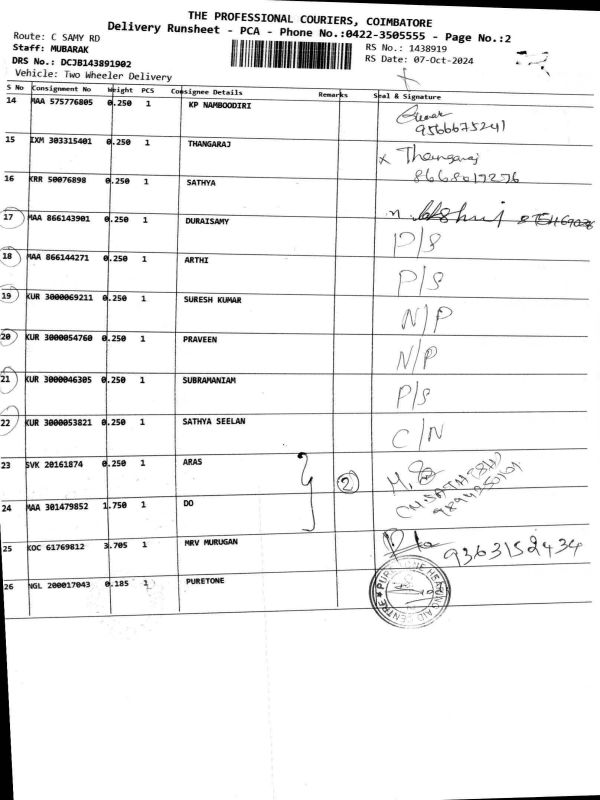 THE PROFESSIONAL COURIERS, COIMBATORE
Delivery Runsheet - PCA - Phone No.:0422-3505555 - Page No.:2
Route: C SAMY RD
RS No.: 1438919
Staff: MUBARAK
RS Date: 07-Oct-2024
DRS No.: DCJB143891902
Vehicle: Two Wheeler Delivery
S No Consignment No Weight PCS Consignee Details Remarks Seal & Signature
14 MAA 575776805 0.250 1 KP NAMBOODIRI
9566675241
15 IXM 303315401 0.250 1 THANGARAJ x Thangaraj
8668017276
16 KRR 50076898 0.250 1 SATHYA
17 MAA 866143901 0.250 1 DURAISAMY P/S
18 MAA 866144271 0.250 1 ARTHI P/S
19 KUR 3000069211 0.250 1 SURESH KUMAR N/P
20 KUR 3000054760 0.250 1 PRAVEEN N/P
21 KUR 3000046305 0.250 1 SUBRAMANIAM P/S
22 KUR 3000053821 0.250 1 SATHYA SEELAN C/N
23 SVK 20161874 0.250 1 ARAS 2
24 MAA 301479852 1.750 1 DO
25 KOC 61769812 3.705 1 MRV MURUGAN 9363152434
26 NGL 200017043 0.185 1 PURETONE
PURETONE HEARING AID CENTRE